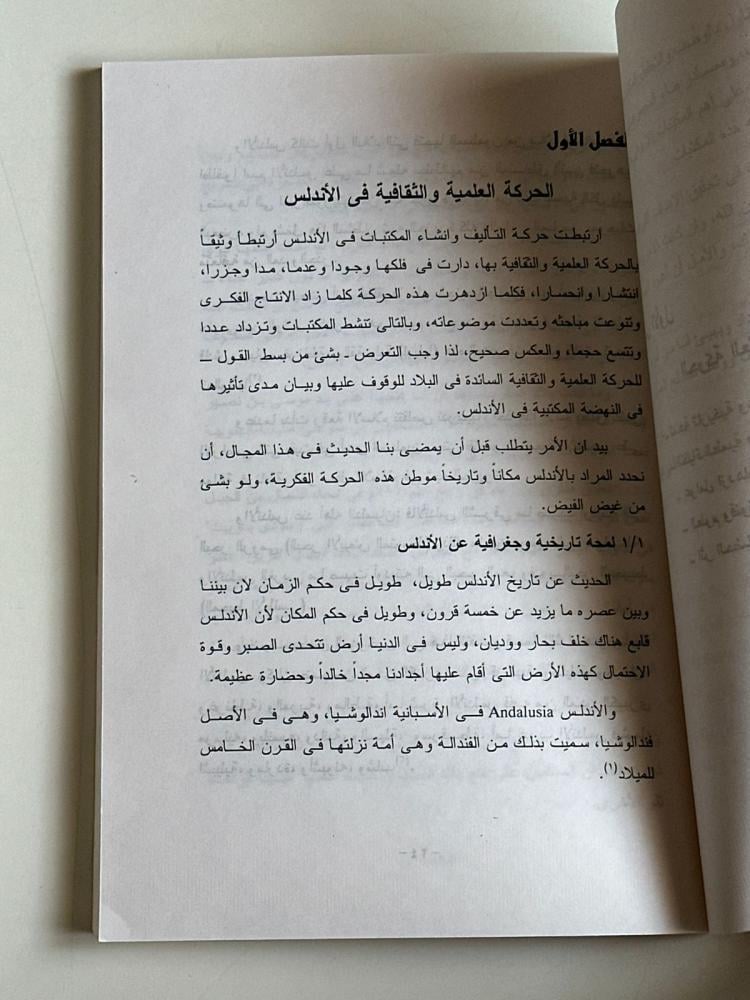 الفصل الأول
الحركة العلمية والثقافية فى الأندلس
ارتبطت حركة التأليف وانشاء المكتبات فى الأندلس أرتبطأ وثيقاً
بالحركة العلمية والثقافية بها، دارت فى فلكها وجودا وعدما، مدا وجزرا،
انتشارا وانحسارا، فكلما ازدهرت هذه الحركة كلما زاد الانتاج الفكرى
وتنوعت مباحثه وتعددت موضوعاته، وبالتالى تنشط المكتبات وتزداد عددا
وتتسع حجما، والعكس صحيح، لذا وجب التعرض ـ بشئ من بسط القول ــ
للحركة العلمية والثقافية السائدة فى البلاد للوقوف عليها وبيان مدى تأثيرها
فى النهضة المكتبية فى الأندلس.
بيد ان الأمر يتطلب قبل أن يمضى بنا الحديث فى هذا المجال، أن
نحدد المراد بالأندلس مكاناً وتاريخاً موطن هذه الحركة الفكرية، ولو بشئ
من غيض الفيض.
١/١ لمحة تاريخية وجغرافية عن الأندلس
الحديث عن تاريخ الأندلس طويل، طويل فى حكم الزمان لان بيننا
وبين عصره ما يزيد عن خمسة قرون، وطويل فى حكم المكان لأن الأندلس
قابع هناك خلف بحار ووديان، وليس فى الدنيا أرض تتحدى الصبر وقوة
الاحتمال كهذه الأرض التى أقام عليها أجدادنا مجداً خالداً وحضارة عظيمة.
والأندلس Andalusia فى الأسبانية اندالوشيا، وهى فى الأصل
فندالوشيا، سميت بذلك من الفندالة وهى أمة نزلتها فى القرن الخامس
للميلاد(١).